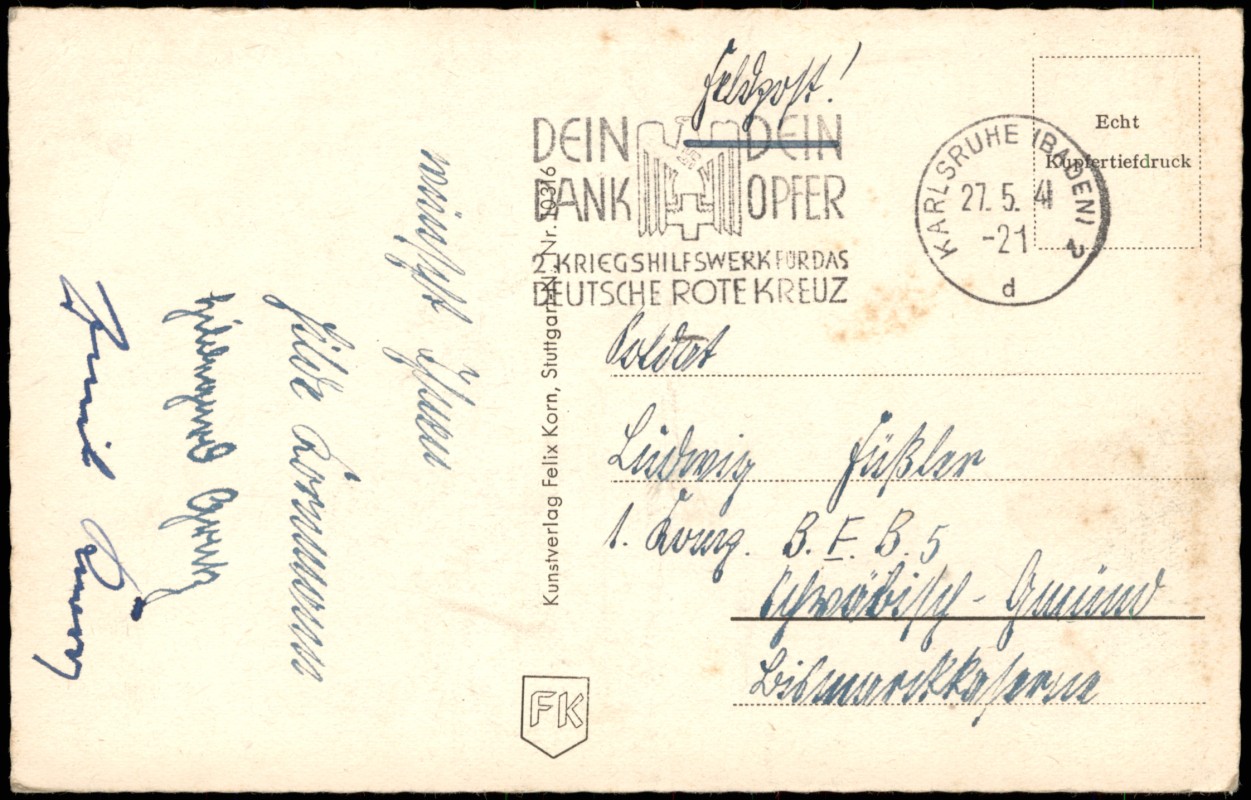 Feldpost!
DEIN DEIN
DANK OPFER
2. KRIEGSHILFSWERK FÜR DAS
DEUTSCHE ROTE KREUZ
KARLSRUHE (BADEN) 2
27. 5. 41
-21
d
Echt
Kupfertiefdruck
Soldat
Ludwig Füßler
1. Komp. B. E. B. 5
Schwäbisch-Gmünd
Bismarckkaserne
Kunstverlag Felix Korn, Stuttgart-N, Nr. 10316
FK
wünscht Ihnen
Hilde